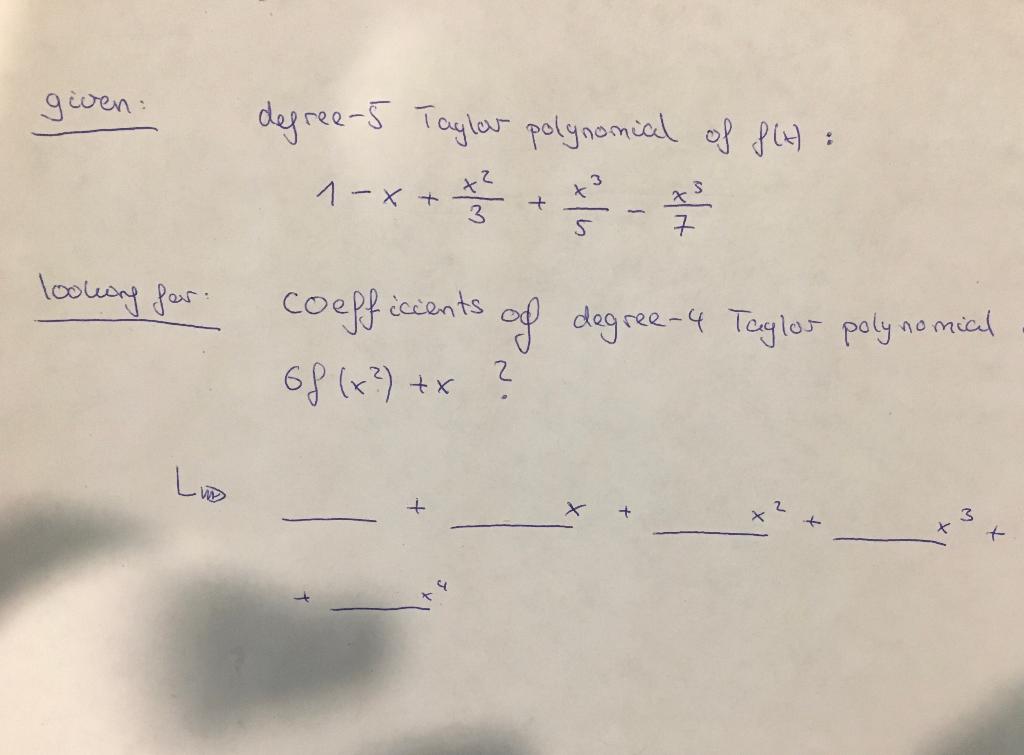 given: degree-5 Taylor polynomial of f(x) :
1 - x + x²/3 + x³/5 - x⁵/7
looking for: coefficients of degree-4 Taylor polynomial
6f(x²) + x ?
↳ ____ + ____ x + ____ x² + ____ x³ +
+ ____ x⁴